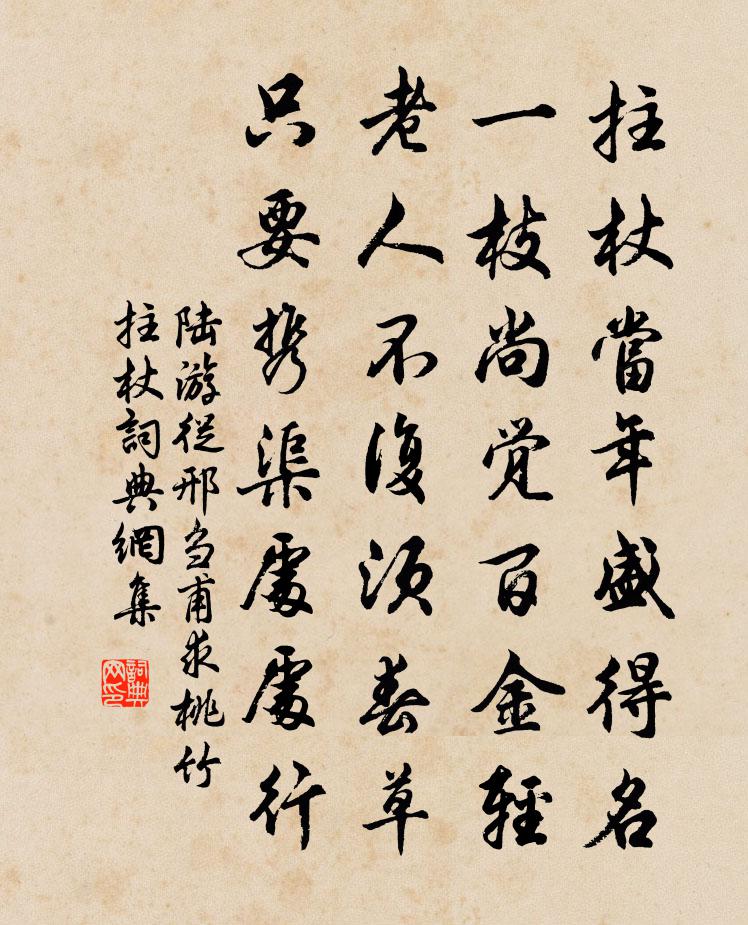 拄杖當年盛得名
一枝尚覚百金輕
老人不復須春草
只要携渠處處行
陸游從邢刍甫求桃竹
拄杖詞典網集
詞典
网印